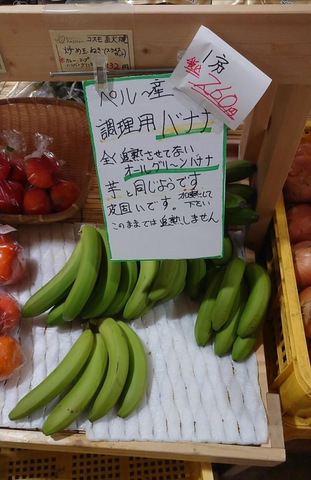 コスモ 直火焼
炒め玉ねぎ
1房
760円
ペルー産
調理用バナナ
全く追熟させてない
オールグリーンバナナ
芋と同じようです
皮固いです。加熱して下さい
このままでは追熟しません